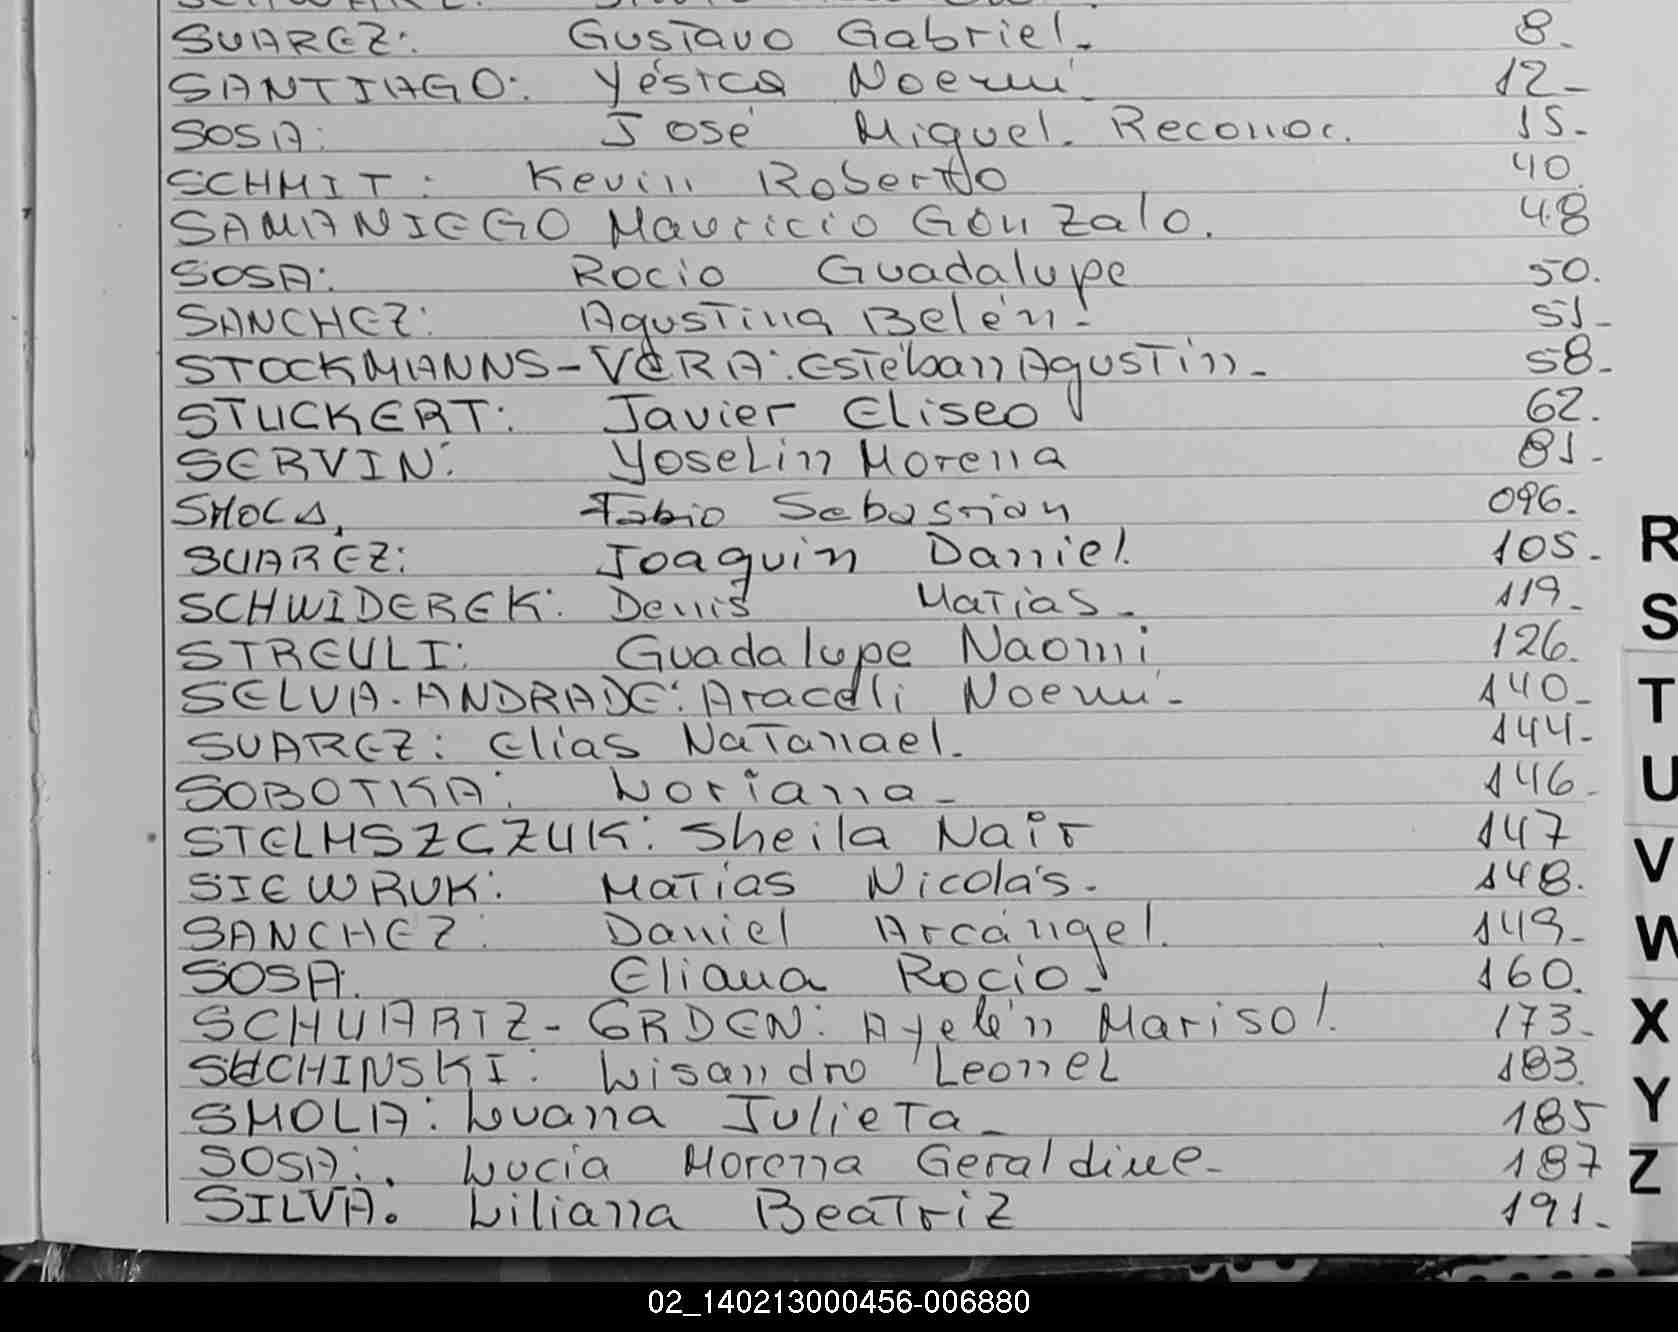 SUAREZ: Gustavo Gabriel. 8.
SANTIAGO: Yésica Noemí. 12-
SOSA: José Miguel. Reconoc. 15.
SCHMIT: Kevin Roberto 40.
SAMANIEGO Mauricio Gonzalo. 48
SOSA: Rocio Guadalupe 50.
SANCHEZ: Agustina Belén. 51-
STOCKMANNS-VERA: Esteban Agustín. 58.
STUCKERT: Javier Eliseo 62.
SERVIN: Yoselin Morena 81.
Fabio Sebastian 096.
SUAREZ: Joaquin Daniel. 105.
SCHWIDEREK: Denis Matías. 119.
STREULI: Guadalupe Naomi 126.
SELVA-ANDRADE: Araceli Noemí. 140-
SUAREZ: Elías Natanael. 144.
SOBOTKA: Loriana- 146.
STELMSZCZUK: Sheila Nair 147
SIEWRUK: Matías Nicolás. 148.
SANCHEZ: Daniel Arcángel. 149-
SOSA. Eliana Rocio. 160.
Ayelén Marisol. 173.
Lisandro Leonel 183.
SMOLA: Luana Julieta- 185
SOSA: Lucía Morena Geraldine- 187
SILVA. Liliana Beatriz 191.
R
S
T
U
V
W
X
Y
Z
02_140213000456-006880